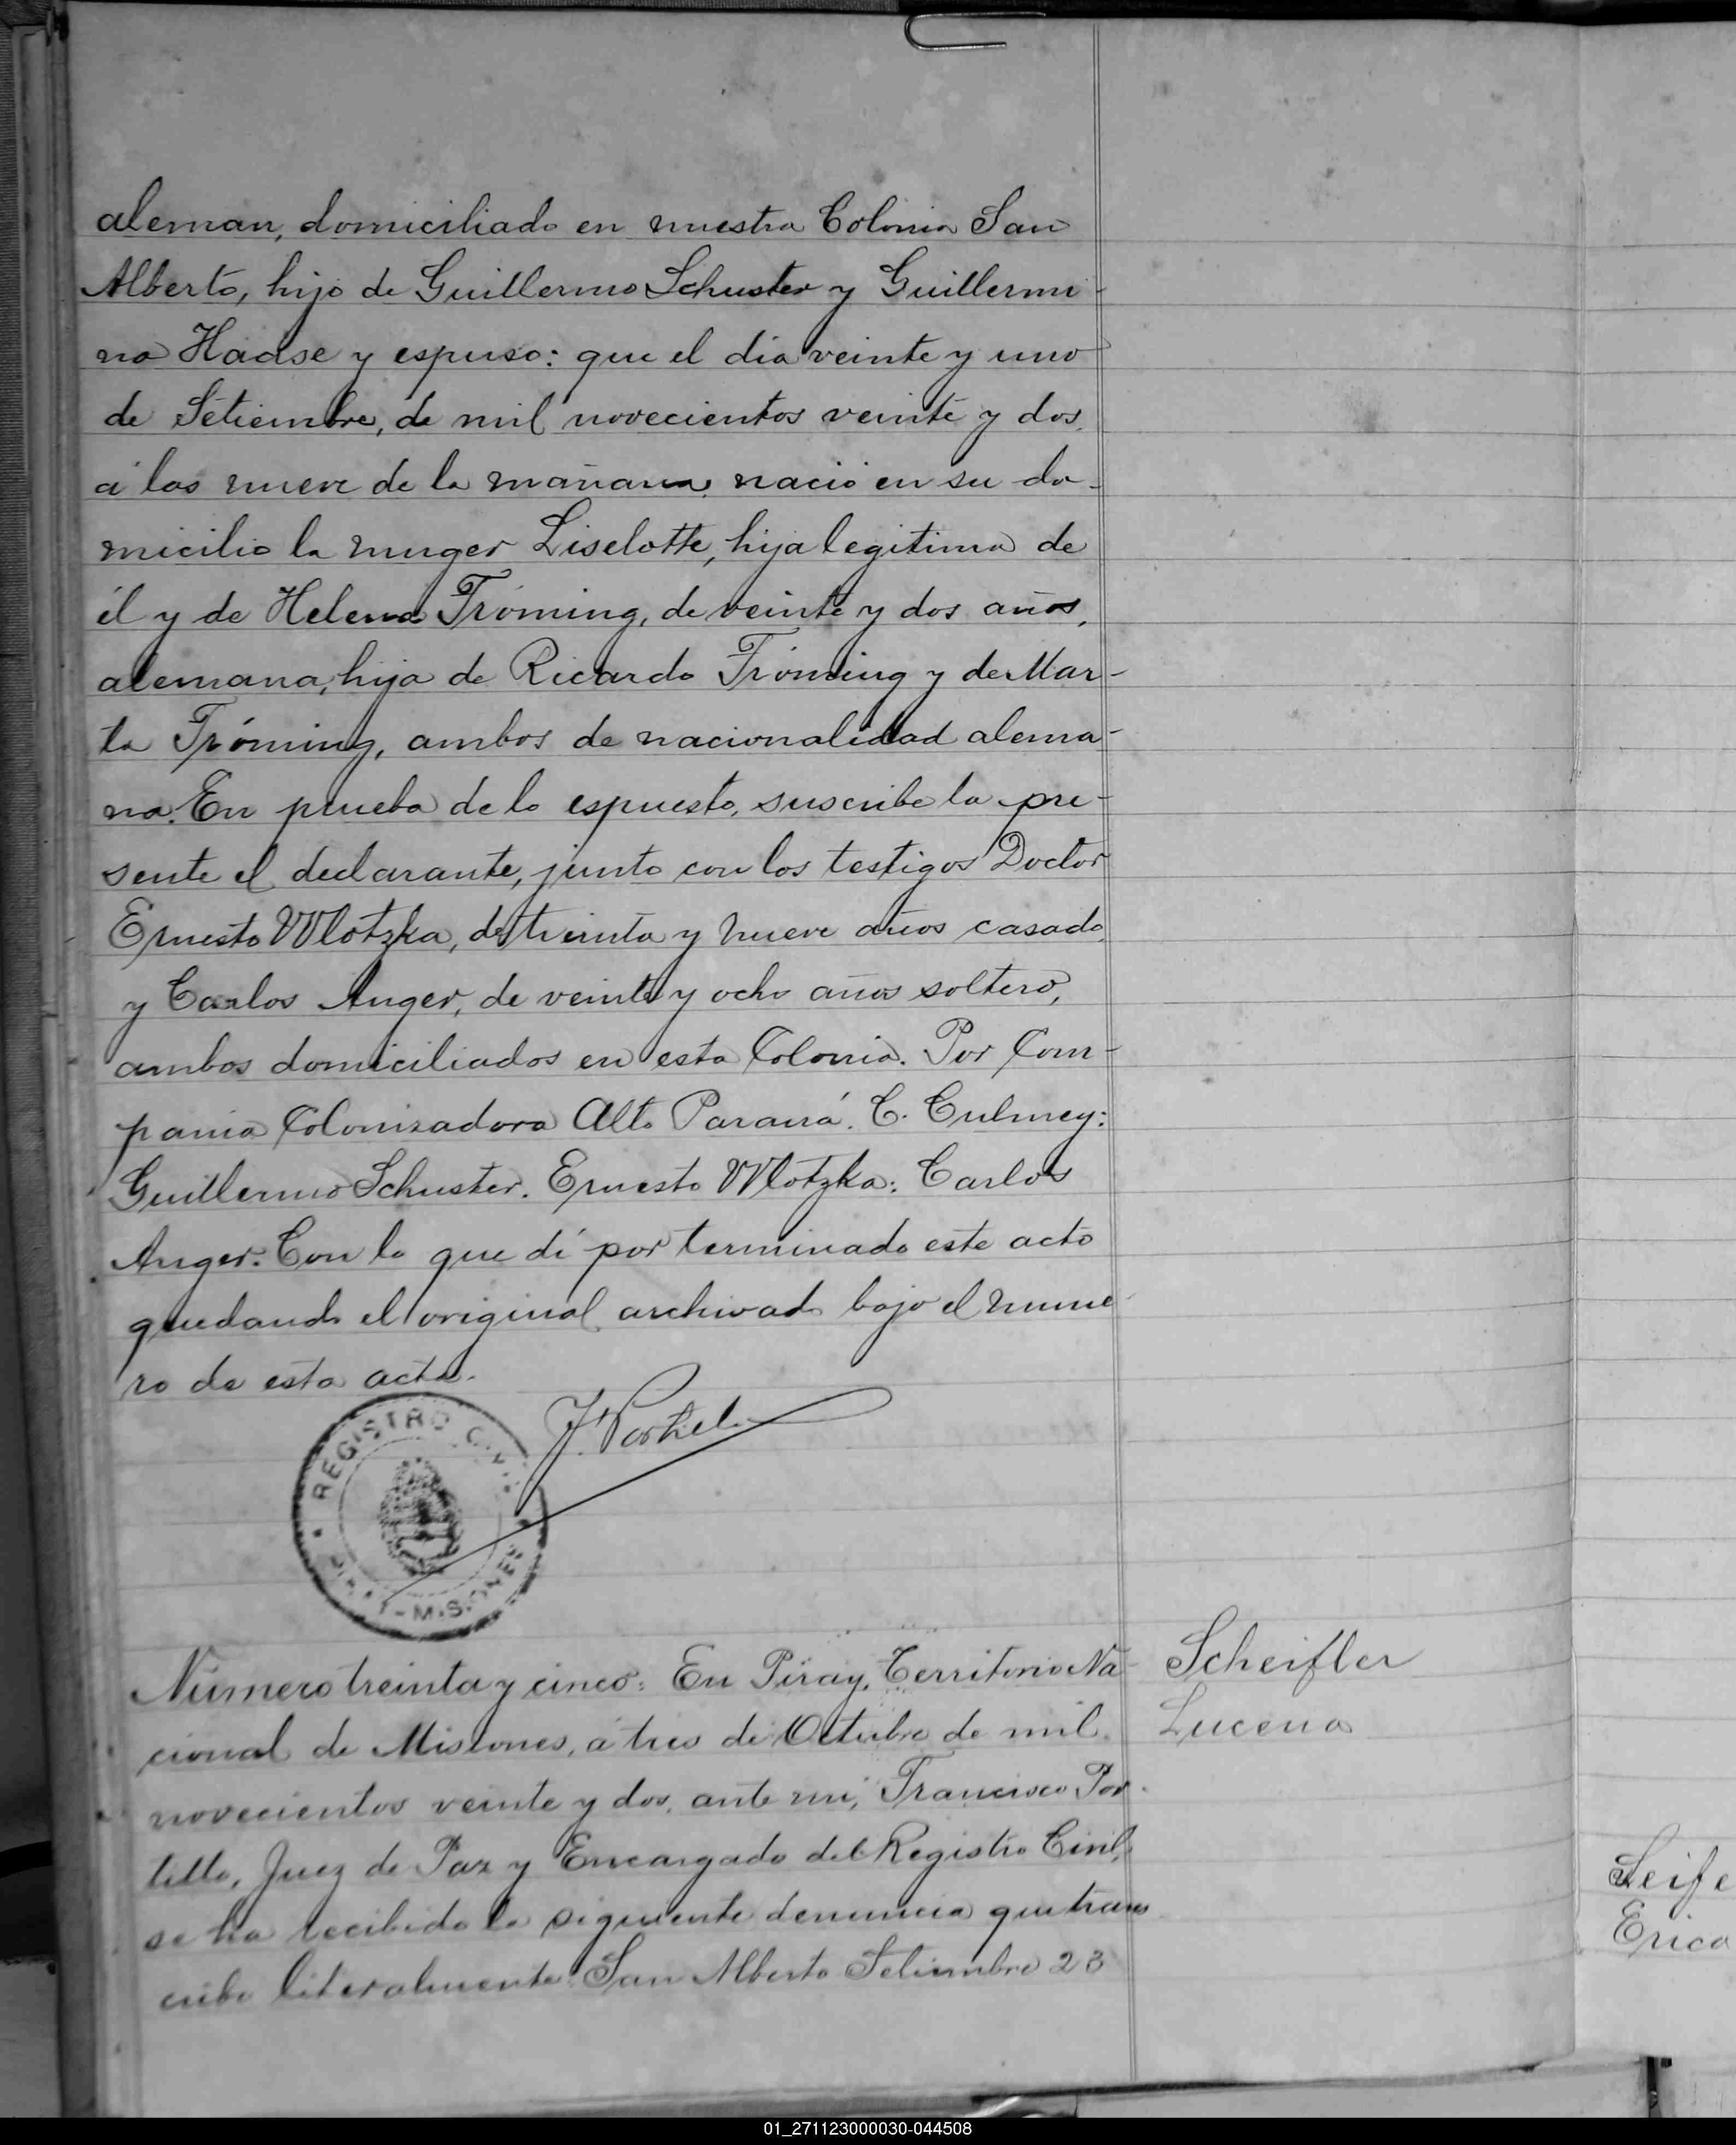 aleman, domiciliado en nuestra Colonia San
Alberto, hijo de Guillermo Schuster y Guillermi-
na Haase y espuso: que el dia veinte y uno
de Setiembre, de mil novecientos veinte y dos,
á las nueve de la mañana nació en su do-
micilio la muger Liselotte, hija legitima de
él y de Helena Tróming, de veinte y dos años,
alemana, hija de Ricardo Tróming y de Mar-
ta Tróming, ambos de nacionalidad alema-
na. En prueba de lo espuesto, suscribe la pre-
sente el declarante, junto con los testigos Doctor
Ernesto Wlotzka, de treinta y nueve años casado,
y Carlos Anger, de veinte y ocho años soltero,
ambos domiciliados en esta Colonia. Por Com-
pania Colonizadora Alto Paraná. C. Culmey:
Guillermo Schuster. Ernesto Wlotzka: Carlos
Anger. Con lo que dí por terminado este acto
quedando el original archivado bajo el nume-
ro de esta acta.
REGISTRO CIVIL
PIRAY - MISIONES
Número treinta y cinco: En Piray, Territorio Na-
cional de Misiones, á tres de Octubre de mil
novecientos veinte y dos, ante mi, Francisco Por-
tillo, Juez de Paz y Encargado del Registro Civil,
se ha recibido la siguiente denuncia que trans
cribo literalmente: San Alberto Setiembre 23
Scheifler
Lucena
Seife
Erica
01_271123000030-044508